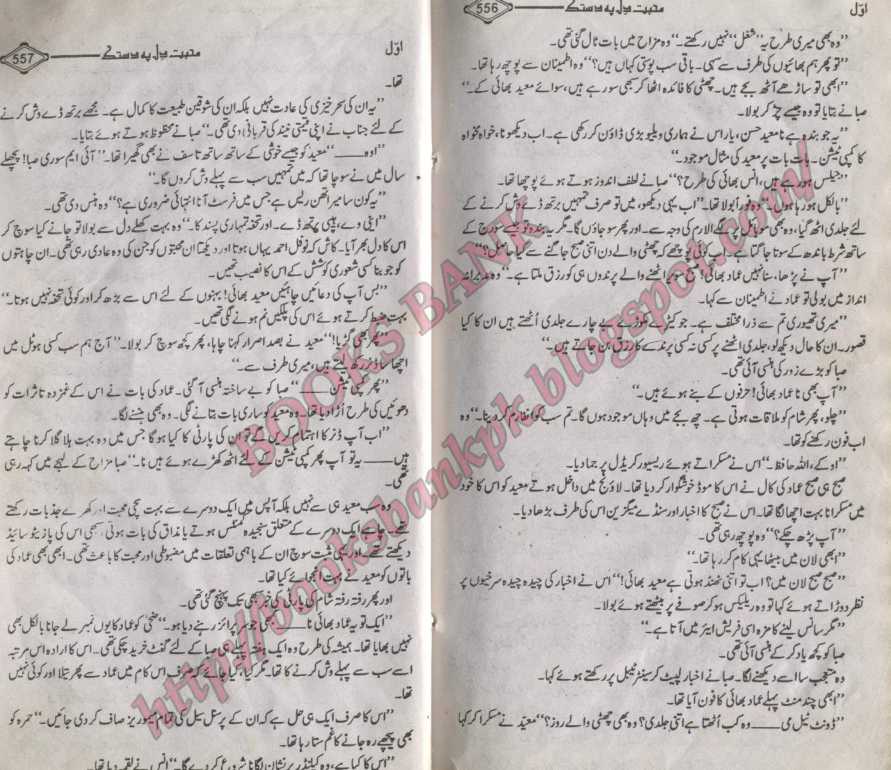 556 محبت دل پہ دستک اوّل
”وہ بھی میری طرح یہ ”شغل“ نہیں رکھتے۔“ وہ مزاح میں بات ٹال گئی تھی۔
”تو پھر ہم بھائیوں کی طرف سے سہی۔ باقی سب پوتی کہاں ہیں؟“ وہ اطمینان سے پوچھ رہا تھا۔
”ابھی تو ساڑھے آٹھ بجے ہیں۔ چھٹی کا فائدہ اٹھا کر بھی سو رہے ہیں، سوائے معید بھائی کے۔“
صبا نے بتایا تو وہ جیسے چڑ کر بولا۔
”یہ جو بندہ ہے نا معید حسن، یار اس نے ہماری ویلیو بڑی ڈاؤن کر رکھی ہے۔ اب دیکھو نا، خواہ مخواہ
کا کمپی ٹیشن۔ بات بات پر معید کی مثال موجود۔“
”جیلس ہو رہے ہیں، انس بھائی کی طرح؟“ صبا نے لطف اندوز ہوتے ہوئے پوچھا تھا۔
”بالکل ہو رہا ہوں۔“ وہ فوراً بولا تھا۔ ”اب یہی دیکھو، میں تو صرف تمہیں برتھ ڈے وش کرنے کے
لئے جلدی اٹھ گیا، وہ بھی موبائل پر لگے الارم کی وجہ سے۔ اور پھر سو جاؤں گا۔ مگر یہ بندہ تو جیسے سورج کے
ساتھ شرط باندھ کے سوتا جاگتا ہے۔ اب کوئی پوچھے کہ چھٹی والے دن اتنی صبح جاگنے سے کیا حاصل؟“
”آپ نے پڑھا، سنا نہیں عماد بھائی! صبح سویرے اٹھنے والے پرندوں ہی کو رزق ملتا ہے۔“ وہ مدبرانہ
انداز میں بولی تو عماد نے اطمینان سے کہا۔
”میری تھیوری تم سے ذرا مختلف ہے۔ جو کیڑے مکوڑے بے چارے جلدی اُٹھتے ہیں ان کا کیا
قصور۔ ان کا حال دیکھو تو، جلدی اٹھنے پر کسی نہ کسی پرندے کا رزق بن جاتے ہیں۔“
صبا کو بڑے زور کی ہنسی آئی تھی۔
”آپ بھی نا عماد بھائی! حرفوں کے بنے ہوئے ہیں۔“
”چلو، پھر شام کو ملاقات ہوتی ہے۔ چھ بجے میں وہاں موجود ہوں گا۔ تم سب کو انفارم کر دینا۔“ وہ
اب فون رکھنے کو تھا۔
”اوکے، اللہ حافظ۔“ اس نے مسکراتے ہوئے ریسیور کریڈل پر جما دیا۔
صبح ہی صبح عماد کی کال نے اس کا موڈ خوشگوار کر دیا تھا۔ لاؤنج میں داخل ہوتے معید کو اس کا خود
میں مسکرانا بہت اچھا لگا تھا۔ اس نے صبح کا اخبار اور سنڈے میگزین اس کی طرف بڑھا دیا۔
”آپ پڑھ چکے؟“ وہ پوچھ رہی تھی۔
”ابھی لان میں بیٹھا یہی کام کر رہا تھا۔“
”صبح صبح لان میں؟ اب تو اتنی ٹھنڈ ہوتی ہے معید بھائی!“ اس نے اخبار کی چیدہ چیدہ سرخیوں پر
نظر دوڑاتے ہوئے کہا تو وہ ریلیکس ہو کر صوفے پر بیٹھتے ہوئے بولا۔
”مگر سانس لینے کا مزہ اسی فریش ایئر میں آتا ہے۔“
صبا کو کچھ یاد کر کے ہنسی آئی تھی۔
وہ متعجب سا اسے دیکھنے لگا۔ صبا نے اخبار لپیٹ کر سینٹر ٹیبل پر رکھتے ہوئے کہا۔
”ابھی چند منٹ پہلے عماد بھائی کا فون آیا تھا۔
”ڈونٹ ٹیل می ــــ وہ کب اُٹھتا ہے اتنی جلدی؟ وہ بھی چھٹی والے روز؟“ معید نے مسکرا کر کہا
557 محبت دل پہ دستک اوّل
تھا۔
”یہ ان کی سحر خیزی کی عادت نہیں بلکہ ان کی شوقین طبیعت کا کمال ہے۔ مجھے برتھ ڈے وش کرنے
کے لئے جناب نے اپنی قیمتی نیند کی قربانی دی تھی۔“ صبا نے محظوظ ہوتے ہوئے بتایا۔
”اوہ ــــ“ معید کو جیسے خوشی کے ساتھ ساتھ تاسف نے بھی گھیرا تھا۔ ”آئی ایم سوری صبا! پچھلے
سال میں نے سوچا تھا کہ میں تمہیں سب سے پہلے وش کروں گا۔“
”یہ کون سا میراتھن ریس ہے جس میں فرسٹ آنا انتہائی ضروری ہے؟“ وہ ہنس دی تھی۔
”اینی وے، ہیپی برتھ ڈے۔ اور تحفہ تمہاری پسند کا۔“ وہ بہت کھلے دل سے بولا تو جانے کیا سوچ کر
اس کا دل بھر آیا۔ کاش کہ نوفل احمد یہاں ہوتا اور دیکھتا ان محبتوں کو جن کی وہ عادی رہی تھی۔ ان چاہتوں
کو جو بنا کسی شعوری کوشش کے اس کا نصیب تھیں۔
”بس آپ کی دعائیں چاہئیں معید بھائی! بہنوں کے لئے اس سے بڑھ کر اور کوئی تحفہ نہیں ہوتا۔“
بہت ضبط کرتے ہوئے اس کی پلکیں نم ہونے لگی تھیں۔
”پھر بھی گڑیا!“ معید نے بصد اصرار کہنا چاہا، پھر کچھ سوچ کر بولا۔ ”آج ہم سب کسی ہوٹل میں
اچھا سا ڈنر کریں گے ہیں، میری طرف سے۔“
”پھر کمپی ٹیشن ــــ“ صبا کو بے ساختہ ہنسی آ گئی۔ عماد کی بات نے اس کے غمزدہ تاثرات کو
دھوئیں کی طرح اُڑا دیا تھا۔ وہ معید کو ساری بات بتانے لگی۔ وہ بھی ہنسنے لگا۔
”اب آپ ڈنر کا اہتمام کریں گے تو ان کی پارٹی کا کیا ہوگا جس میں وہ بہت ہلا گلا کرنا چاہتے
ہیں ــــ یہ تو آپ پھر کمپی ٹیشن کے لئے اٹھ کھڑے ہوئے ہیں نا۔“ صبا مزاح کے لہجے میں کہہ رہی
تھی۔
وہ سب معید ہی سے نہیں بلکہ آپس میں ایک دوسرے سے بہت سچی محبت اور کھرے جذبات رکھتے
تھے۔ چاہے ایک دوسرے کے متعلق سنجیدہ کمنٹس ہوتے یا مذاق کی بات ہوتی، سبھی اس کی پازیٹو سائیڈ
دیکھتے تھے۔ اور یہی مثبت سوچ ان کے باہمی تعلقات میں مضبوطی اور محبت کا باعث تھی۔ ابھی بھی عماد کی
باتوں کو معید نے بہت انجوائے کیا تھا۔
اور پھر رفتہ رفتہ شام کی پارٹی کی خبر سبھی تک پہنچ گئی تھی۔
”ایک تو یہ عماد بھائی نا ــــ کبھی جو سرپرائز رہنے دیا ہو۔“ ضحیٰ کو عماد کا یوں نمبر لے جانا بالکل بھی
نہیں بھایا تھا۔ ہمیشہ کی طرح وہ ایک ہفتہ پہلے ہی صبا کے لئے گفٹ خرید چکی تھی۔ اس کا ارادہ اس مرتبہ
اسے سب سے پہلے وش کرنے کا تھا۔ مگر کیا، کیا جائے کہ صرف اس کام میں عماد سے پھرتیلا اور کوئی نہیں
تھا۔
”اس کا صرف ایک ہی حل ہے کہ ان کے پرسنل سیل کی تمام میموریز صاف کر دی جائیں۔“ حمرہ کو
بھی پیچھے رہ جانے کا غم ستا رہا تھا۔
”اس کا کیا ہے، وہ کیلنڈر پر نشان لگانا شروع کر دے گا۔“ انس نے لقمہ دیا تھا۔
BOOKS BANK
http://booksbankpk.blogspot.com/